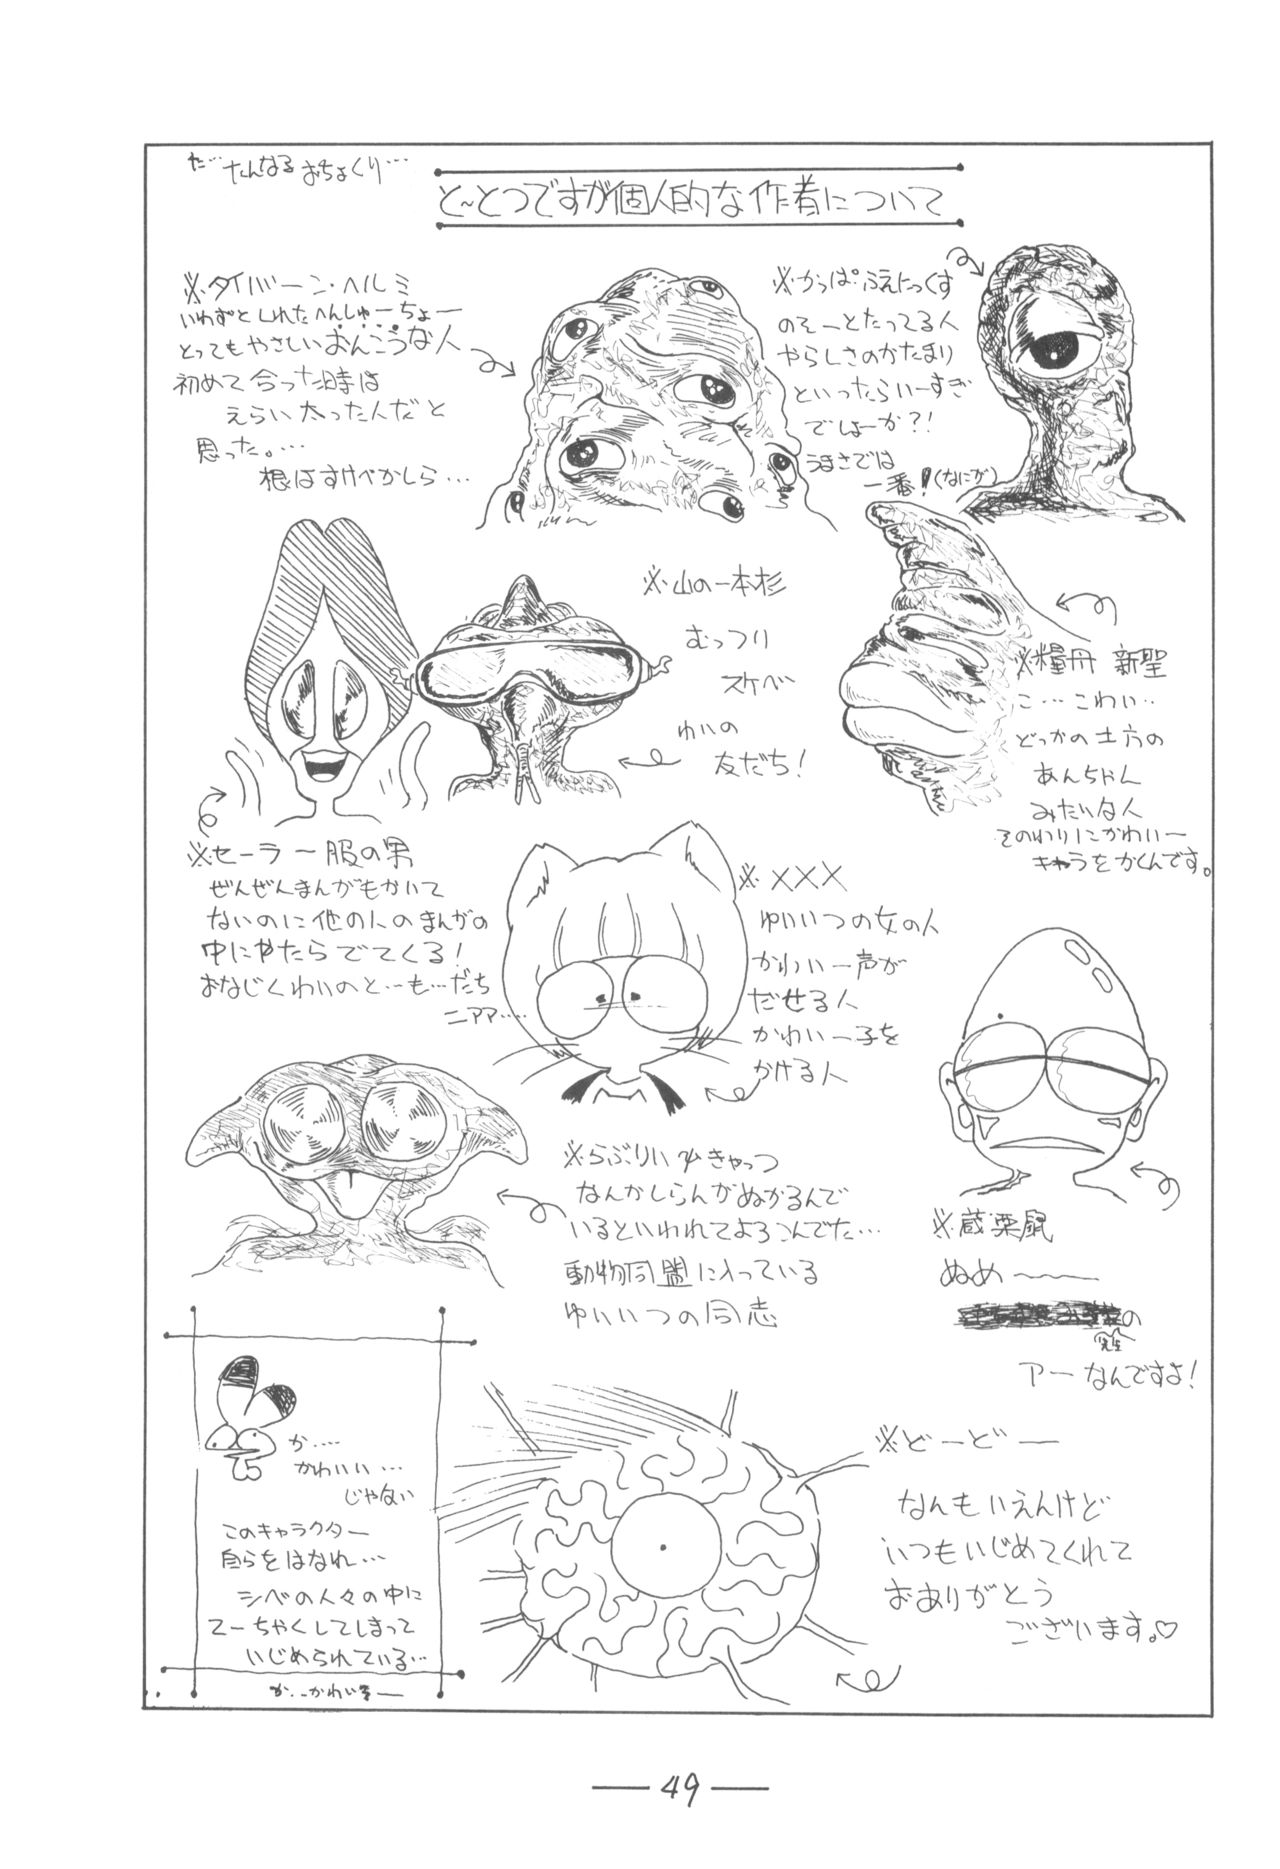 た…たんなるおちょくり…
と〜とつですが個人的な作者について
※タイバーン・ヘルミ
いわずとしれたへんしゅーちょー
とってもやさしいおんこうな人
初めて合った時は
えらい太ったんだと
思った。…
根はすけべかしら…
※かっぱふえにっくす
のそーとたってる人
やらしさのかたまり
といったらいーすぎ
でしょーか?!
うまさでは
一番!(なにが)
※山の一本杉
むっつり
スケベ
ゆいの
友だち!
※糧丹 新聖
こ…こわい‥
どっかの土方の
あんちゃん
みたいな人
そのわりにかわいー
キャラをかくんです。
※セーラー服の男
ぜんぜんまんがもかいて
ないのに他の人のまんがの
中にやたらでてくる!
おなじくわいのと…も…だち
ニアア……
※×××
ゆいいつの女の人
かわいー声が
だせる人
かわいー子を
かける人
※らぶりい きゃっつ
なんかしらんがぬかるんで
いるといわれてよろこんでた…
動物同盟に入っている
ゆいいつの同志
※蔵栗鼠
ぬめ〜〜
の
先生
アーなんですよ!
か‥‥
かわいい…
じゃない
このキャラクター
自らをはなれ…
シベの人々の中に
てーちゃくしてしまって
いじめられている…
か…かわいそー
※どーどー
なんもいえんけど
いつもいじめてくれて
おありがとう
ございます。♡
— 49 —